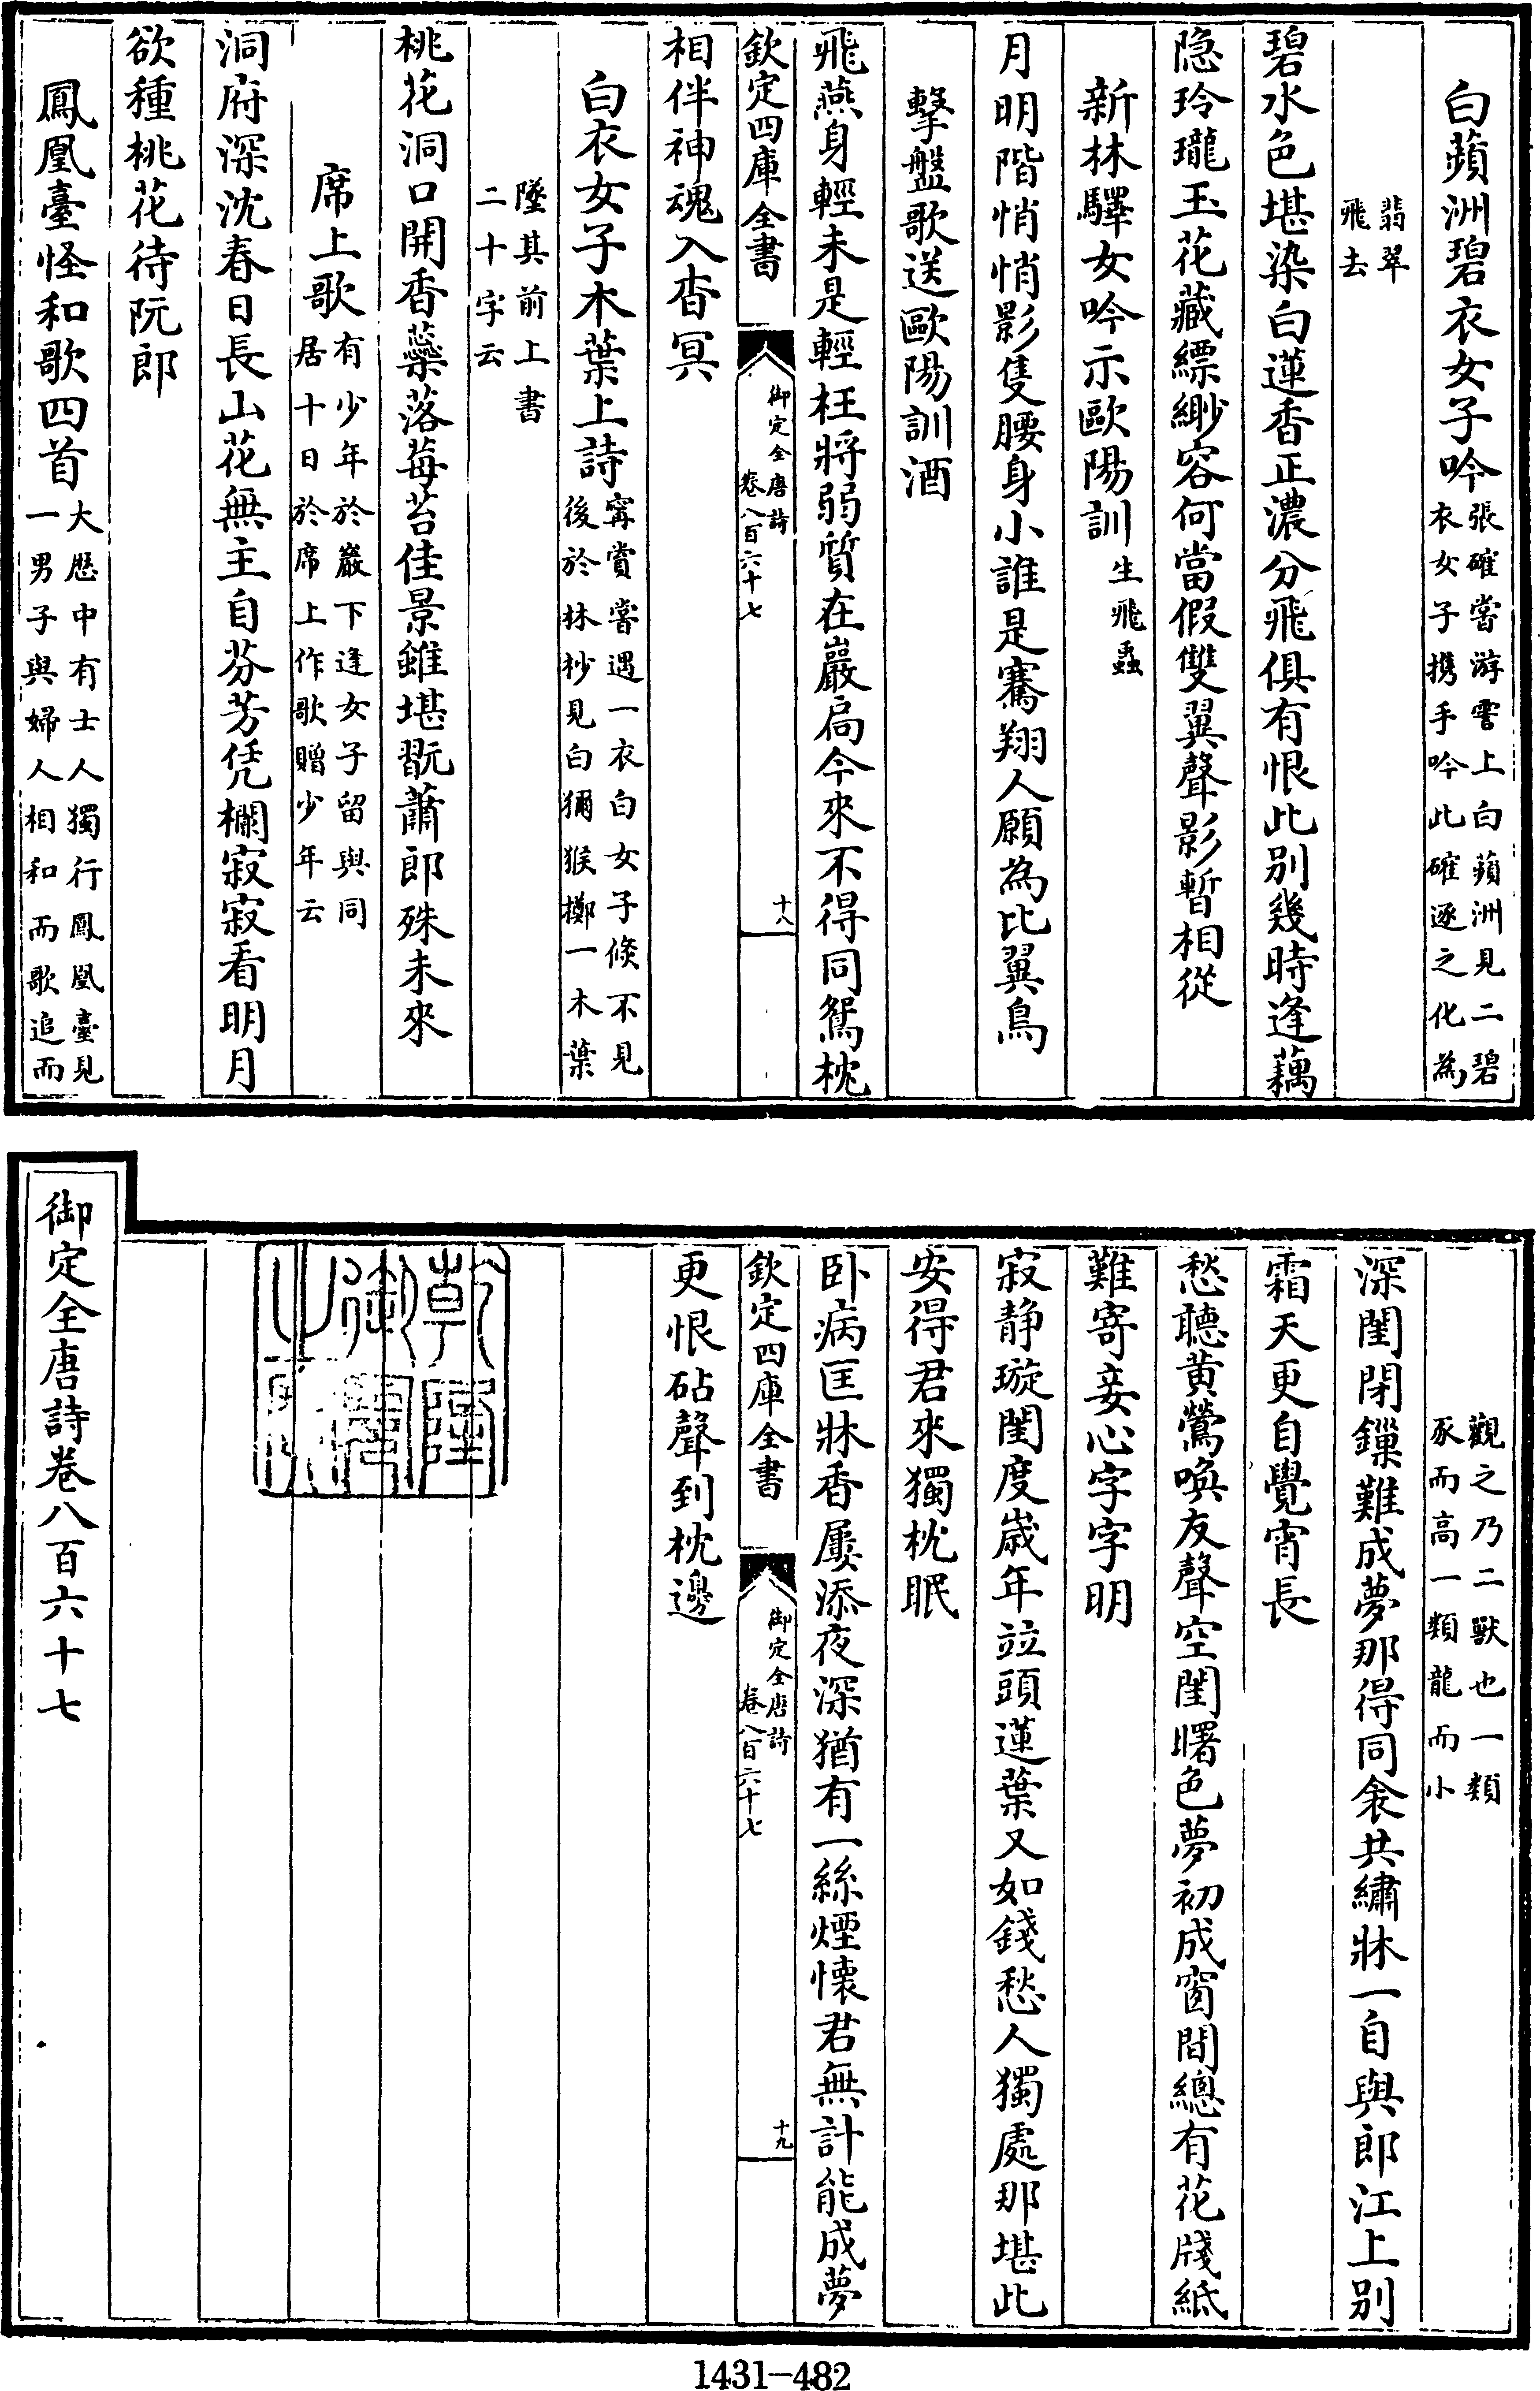 白蘋洲碧衣女子吟張確嘗游霅上白蘋洲見二碧衣女子携手吟此確逐之化為
翡翠飛去
碧水色堪染白蓮香正濃分飛俱有恨此别幾時逢藕
隐玲瓏玉花藏縹緲容何當假雙翼聲影暫相從
新林驛女吟示歐陽訓生飛蟲
月明階悄悄影隻腰身小誰是騫翔人願為比翼鳥
擊盤歌送歐陽訓酒
飛燕身輕未是輕枉將弱質在巖扃今來不得同鴛枕
欽定四庫全書
御定全唐詩
卷八百六十七
十八
相伴神魂入杳冥
白衣女子木葉上詩寗賞嘗遇一衣白女子倐不見後於林杪見白獼猴擲一木葉
墜其前上書二十字云
桃花洞口開香蘂落莓苔佳景雖堪翫蕭郎殊未來
席上歌有少年於巖下逢女子留與同居十日於席上作歌贈少年云
洞府深沈春日長山花無主自芬芳凭欄寂寂看明月
欲種桃花待阮郎
鳳凰臺怪和歌四首大厯中有士人獨行鳳凰臺見一男子與婦人相和而歌追而
觀之乃二獸也一類豕而高一類龍而小
深閨閉鏁難成夢那得同衾共繡牀一自與郎江上别
霜天更自覺宵長
愁聽黄鶯喚友聲空閨曙色夢初成窗間總有花牋紙
難寄妾心字字明
寂静璇閨度歲年竝頭蓮葉又如錢愁人獨處那堪此
安得君來獨枕眠
卧病匡牀香屢添夜深猶有一絲煙懷君無計能成夢
欽定四庫全書
御定全唐詩
卷八百六十七
十九
更恨砧聲到枕邊
乾隆御覽之寶
御定全唐詩卷八百六十七
1431-482